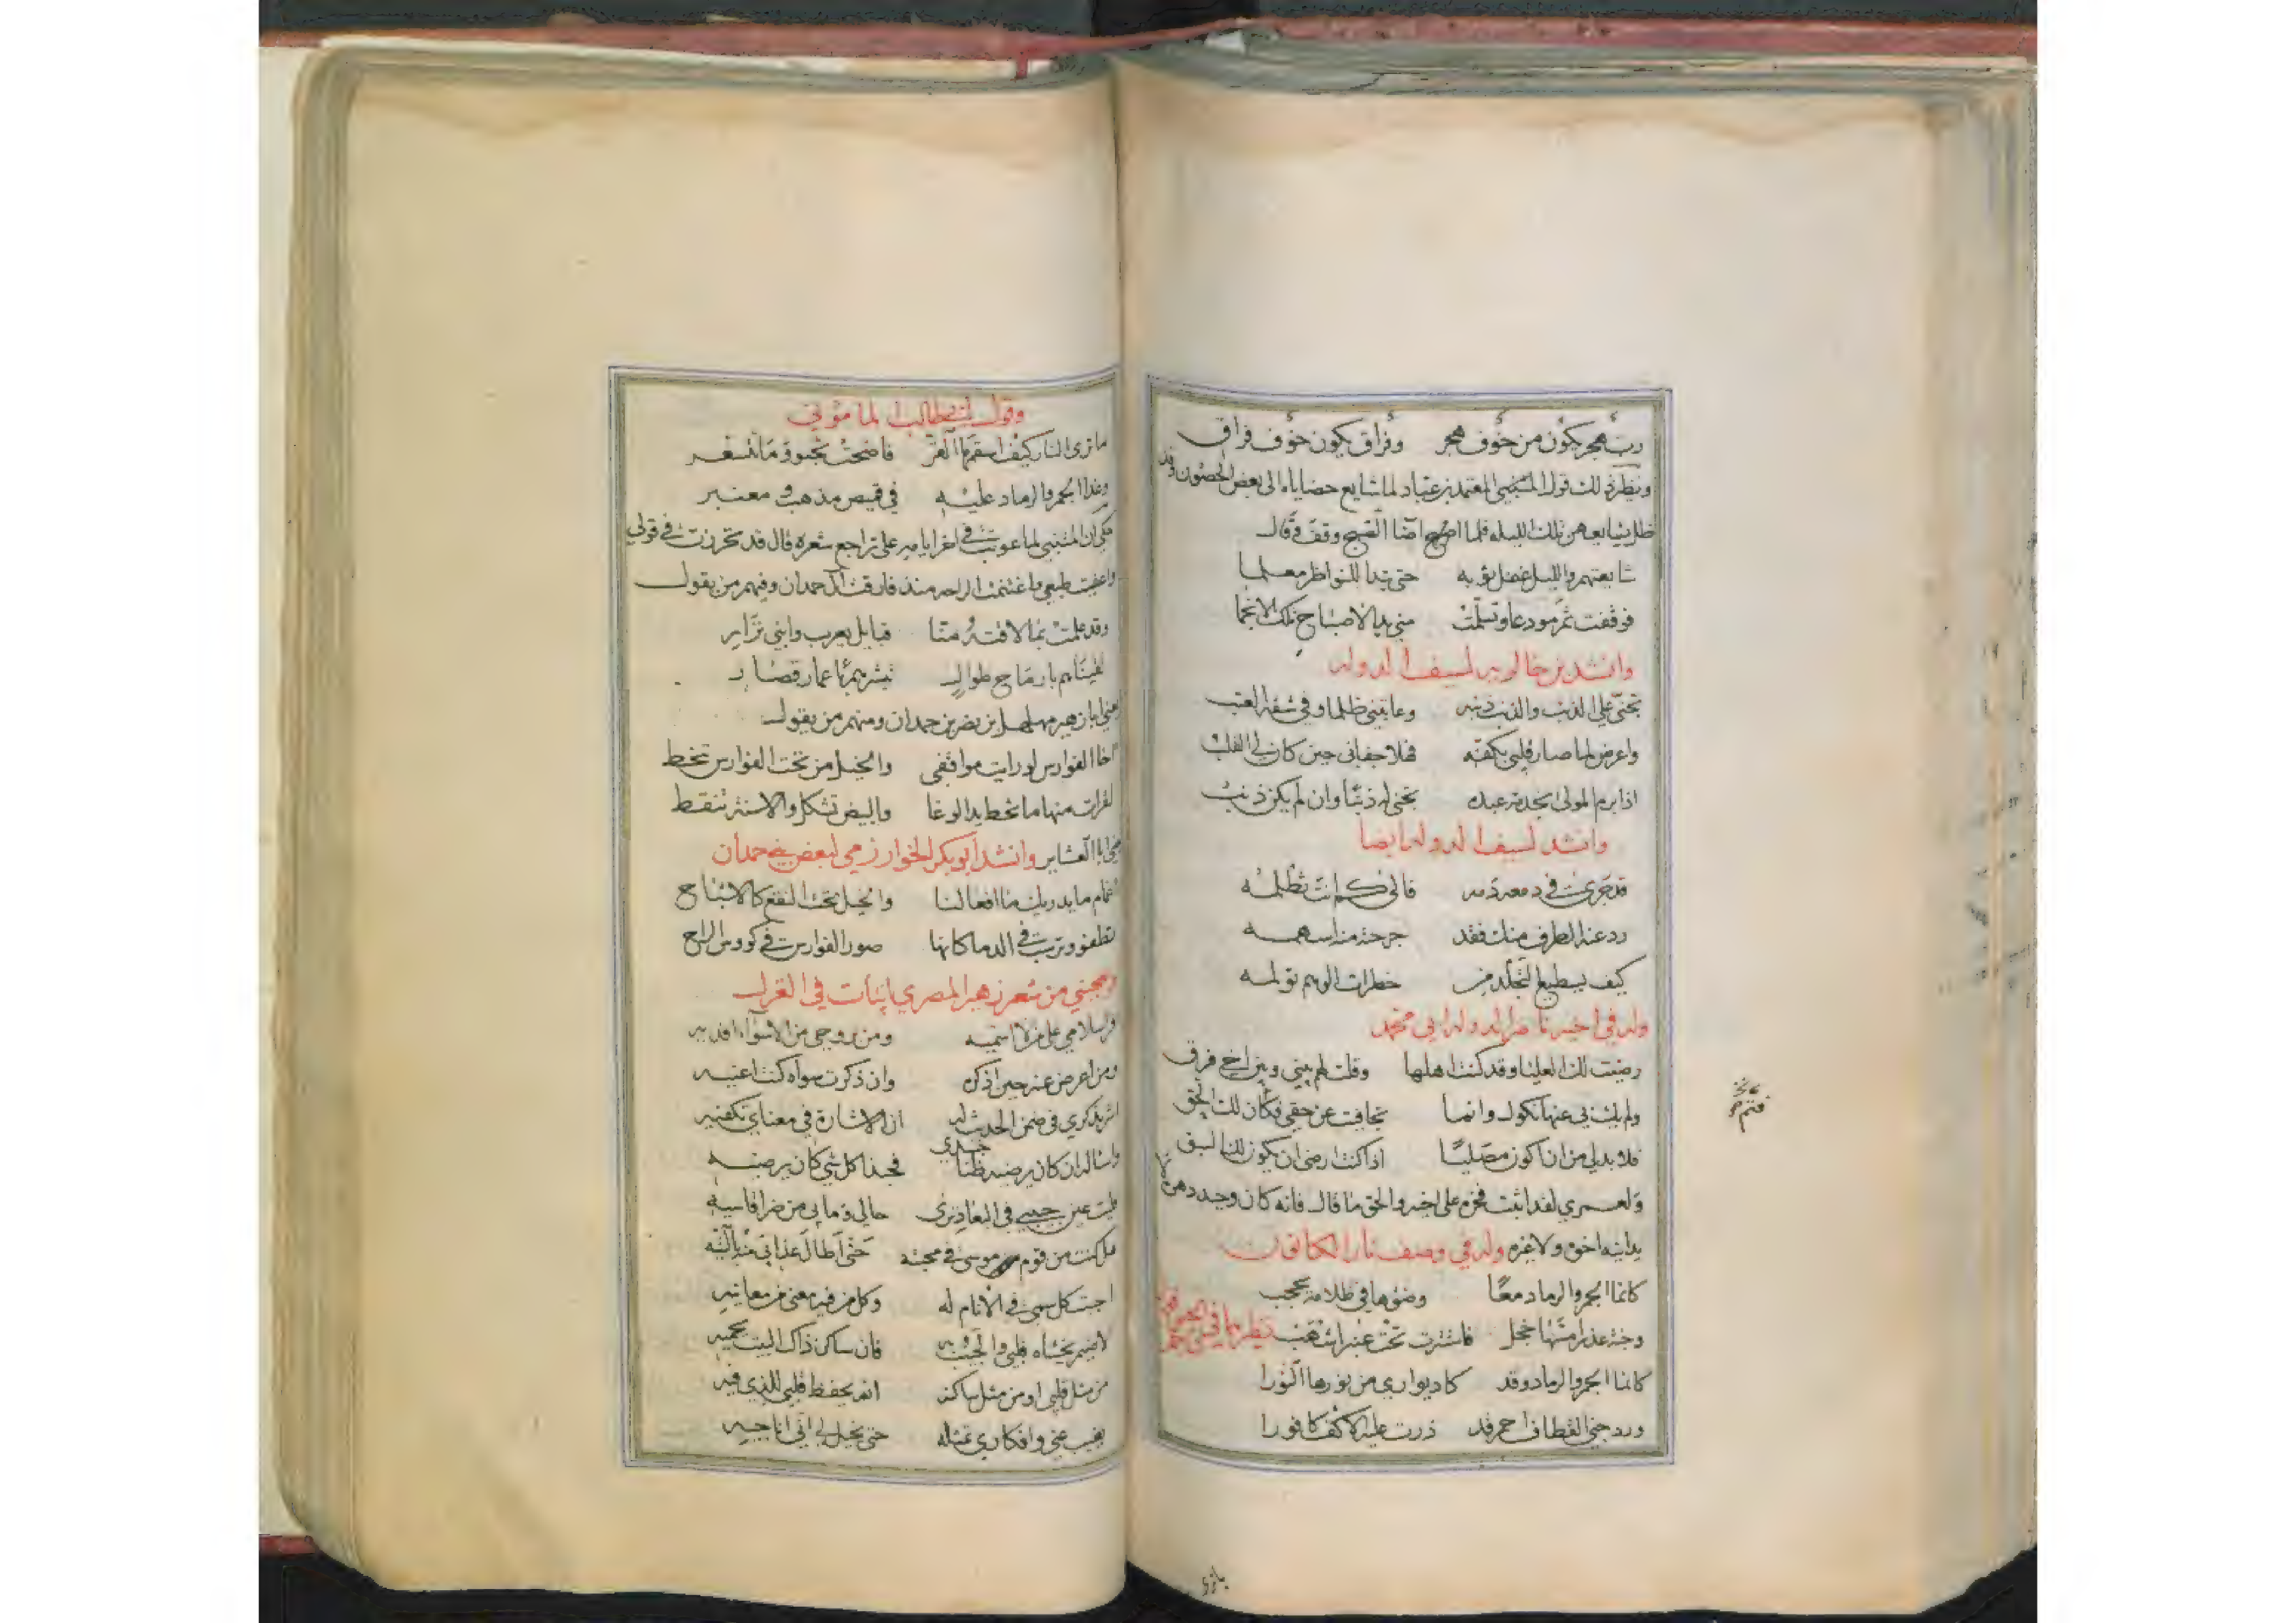 رب هجر يكون من خوف هجر وفراق يكون خوف فراق
ونظير ذلك قول المعتمد بن عباد لما شايع حضاياه الى بعض الحصون وقد
ظل يشايعهن تلك الليله فلما اصبح اضا الصبح وقف وقال
شايعتهم والليل غفل ثوبه حتى تبدا للنواظر معلما
فوقفت ثم مودعا وتسلمت مني يد الاصباح تلك الانجما
وانشد بن خالويه لسيف الدوله
تجنى علي الذنب والذنب ذنبه وعاتبني ظلما وفي شقه العتب
واعرض لما صار قلبي بكفه فهلا جفاني حين كان لي القلب
اذا برم المولى بخدمة عبده تجنى له ذنبا وان لم يكن ذنب
وانشد لسيف الدوله ايضا
قد جرى في دمعه دمه فالى كم انت تظلمه
رد عنه الطرف منك فقد جرحته منه اسهمه
كيف يسطيع التجلد من خطرات الوهم تولمه
وله في اخيه ناصر الدوله ابي محمد
رضيت لك العليا وقد كنت اهلها وقلت لهم بيني وبين اخي فرق
ولم يك بي عنها نكول وانما تجافيت عن حقي فكان لك الحق
فلا بد لي من ان اكون مصليا اذا كنت ارضى ان يكون لك السبق
ولعمري لقد اثبت فخره على اخيه والحق ما قال فانه كان وحيد دهره
يدانيه اخوه ولا غيره وله في وصف نار الكانون
كانما الجمر والرماد معا وضوها في ظلامه يحجب
وجنة عذرا مسها خجل فاستترت تحت عنبر اشهب
كانما الجمر والرماد وقد كاد يواري من نورها النورا
ورد جني القطاف احمر قد ذرت عليه الاكف كافورا
وقول ابي طالب المأموني
ما ترى النار كيف اسقمها القر فاضحت تخبو وما تسعر
وغدا الجمر والرماد عليه في قميص مذهب ومعنبر
حكي ان المتنبي لما عوتب في اخر ايامه على تراجع شعره قال قد تجوزت في قولي
واعفيت طبعي واغتنمت الراحه منذ فارقت ال حمدان وفيهم من يقول
وقد علمت بما لاقته منا قبايل يعرب وابني نزار
لقيناهم بارماح طوال تبشرهم باعمار قصار
يعني ابا زهير مهلهل بن نصر بن حمدان ومنهم من يقول
اخا الفوارس لو رايت مواقفي والخيل من تحت الفوارس تنحط
لقرات منها ما تخط يد الوغا والبيض تشكل والاسنة تنقط
يعني ابا العشاير وانشد ابو بكر الخوارزمي لبعض بني حمدان
والخيل تحت النقع كالاشباح
تطفو وترسب في الدما كانها صور الفوارس في كووس الراح
ويعجبني من شعر زهير المصري ابيات في الغزل
اقرا سلامي على من لا اسميه ومن بروحي من الاسواء افديه
ومن اعرض عنه حين اذكره وان ذكرت سواه كنت اعنيه
اشر بذكري في ضمن الحديث له ان الاشارة في معناي تكفيه
واساله ان كان يرضيه ضنا جسدي فحبذا كل شي كان يرضيه
فليت عين حبيبي في البعاد ترى حالي وما بي من ضر اقاسيه
هل كنت من قوم موسى في محبته حتى اطال عذابي منه بالتيه
احببت كل سمي في الانام له وكل من فيه معنى من معانيه
لا ضيم يخشاه قلبي والحبيب به فان ساكن ذاك البيت يحميه
من مثل قلبي او من مثل ساكنه الله يحفظ قلبي للذي فيه
يغيب عني وافكاري تمثله حتى يخيل لي اني اناجيه